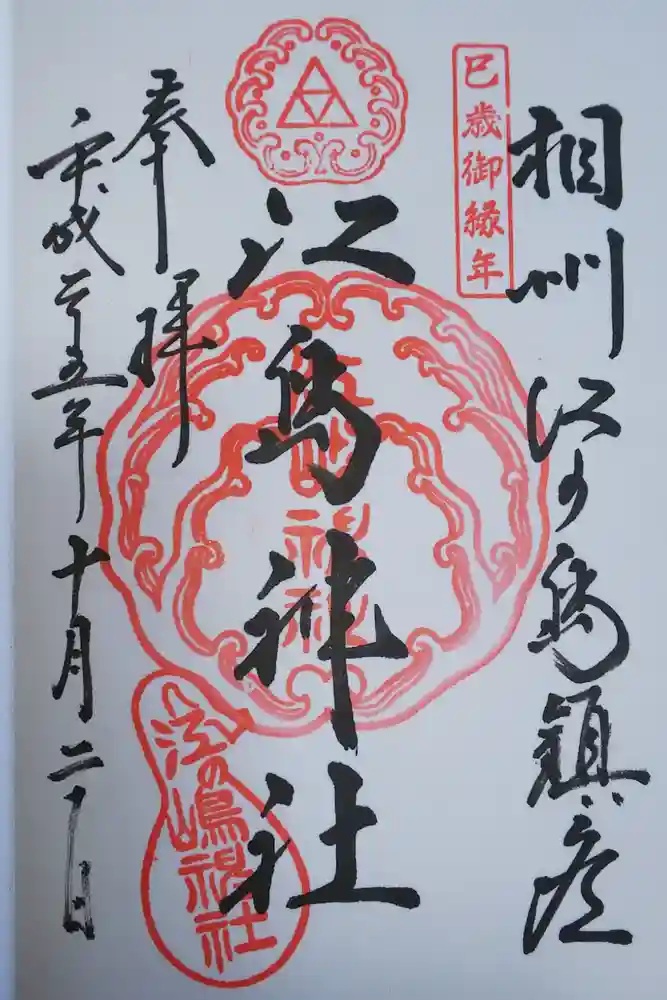 相州江の島鎮座
巳歳御縁年
江島神社
奉拝
平成二十五年十月二十日
江の嶋神社